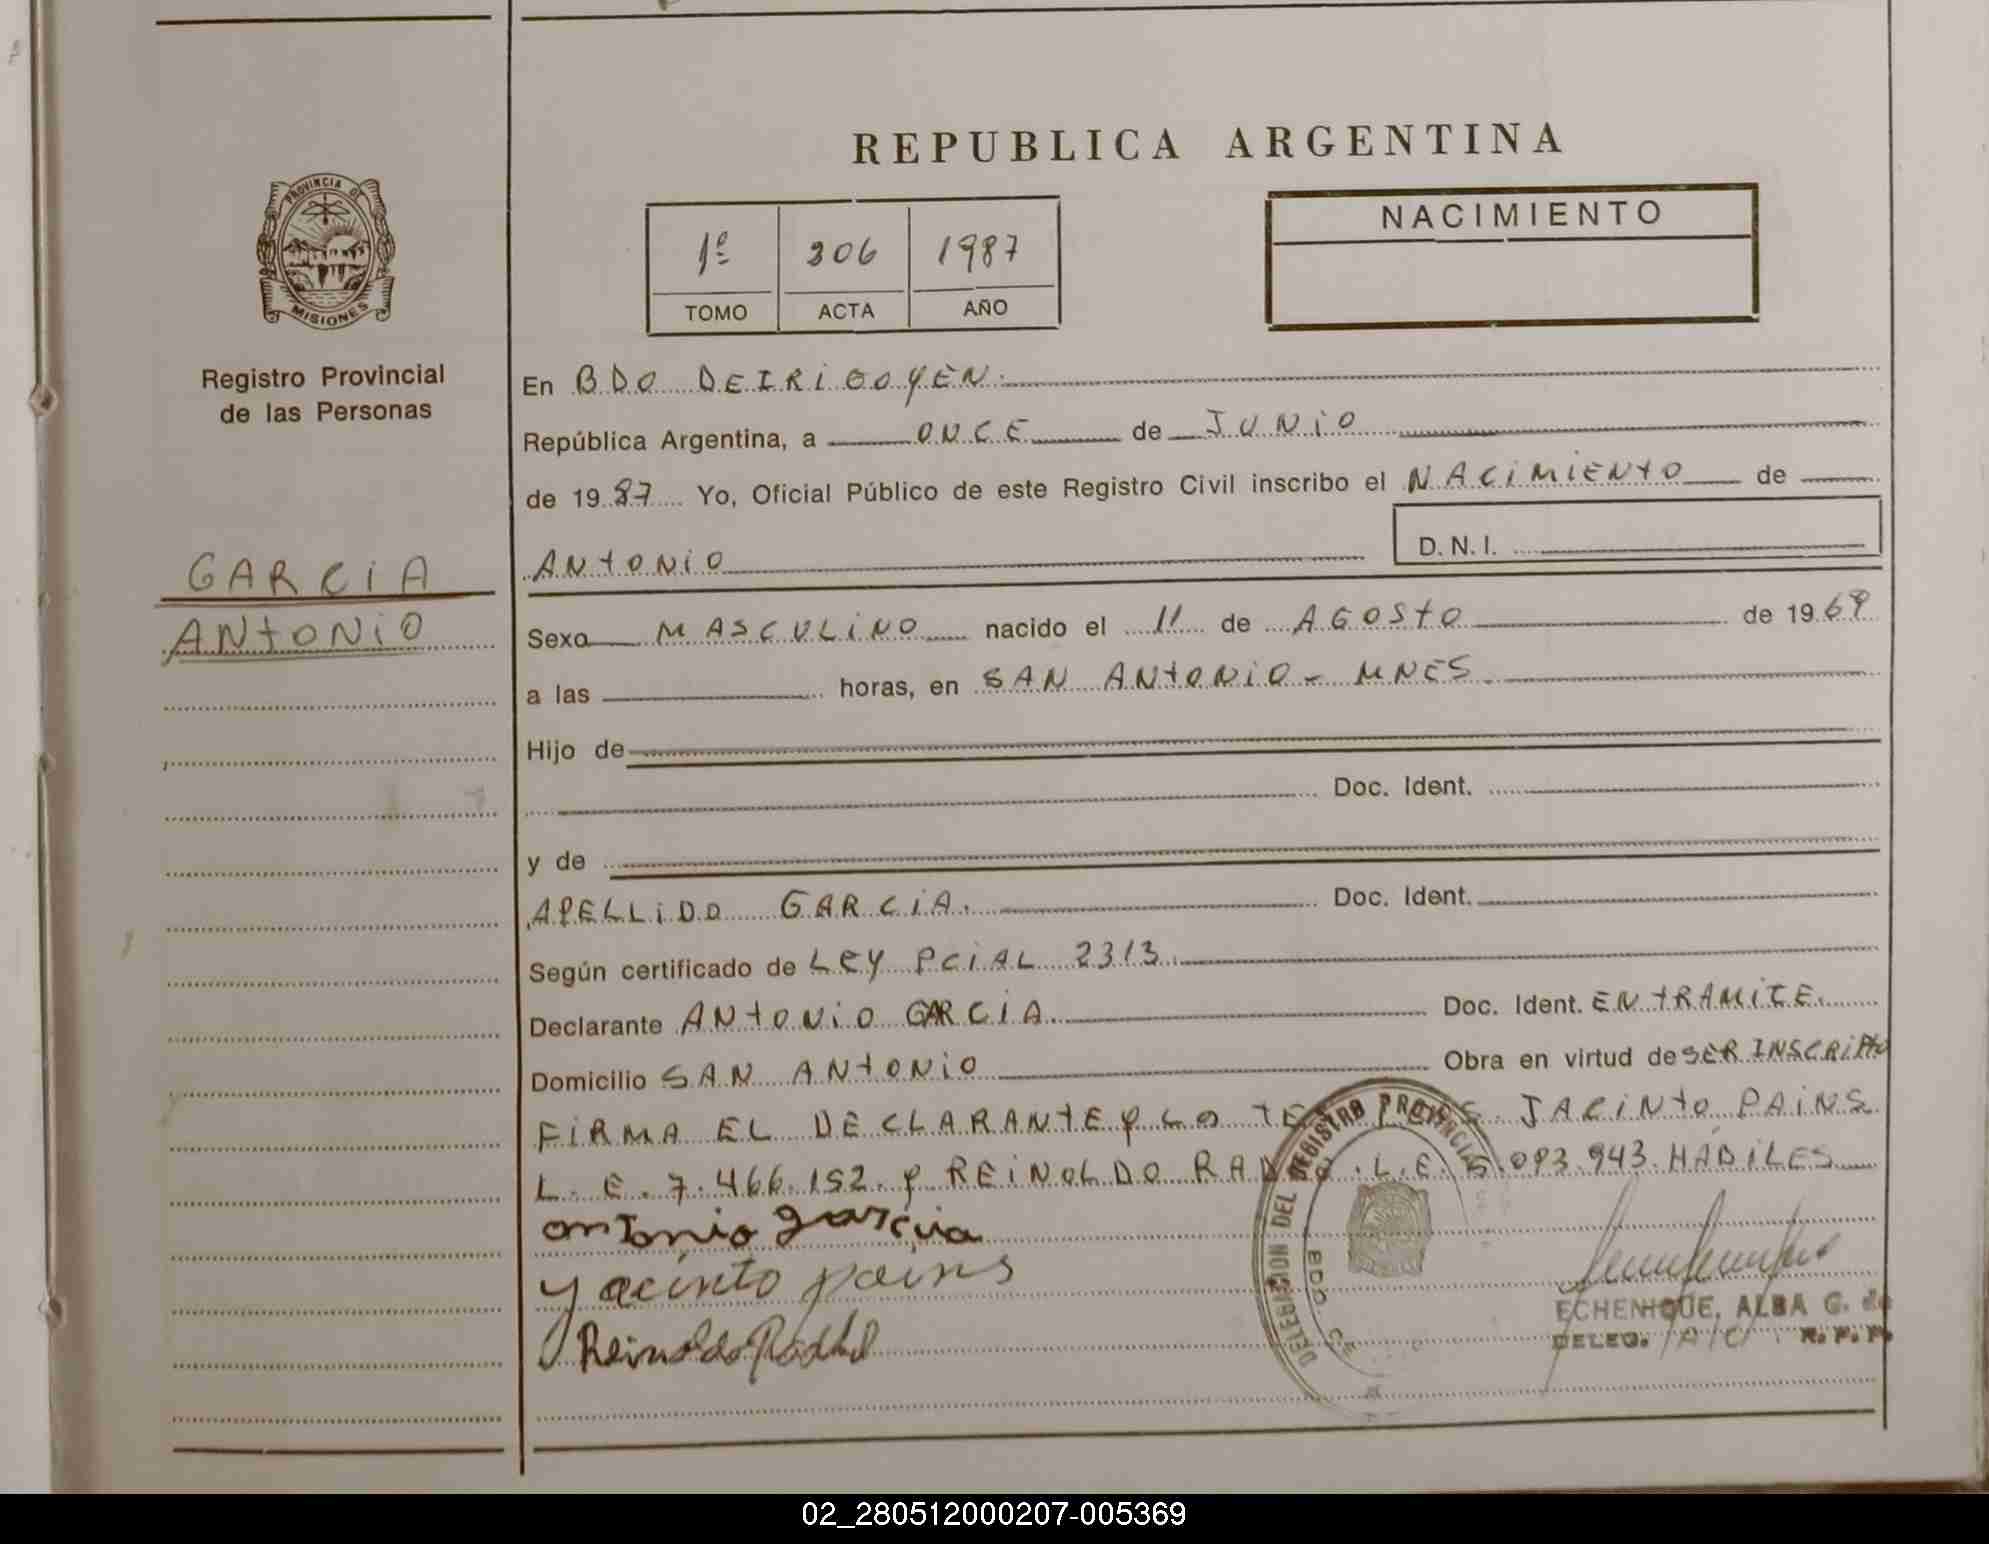 REPUBLICA ARGENTINA
PROVINCIA DE
MISIONES
Registro Provincial
de las Personas
GARCIA
ANTONIO
1º 306 1987
TOMO ACTA AÑO
NACIMIENTO
En BDO DEIRIGOYEN.
República Argentina, a ONCE de JUNIO
de 1987 Yo, Oficial Público de este Registro Civil inscribo el NACIMIENTO de
ANTONIO D.N.I.
Sexo MASCULINO nacido el 11 de AGOSTO de 1969
a las horas, en SAN ANTONIO - MNES.
Hijo de
Doc. Ident.
y de
APELLIDO GARCIA. Doc. Ident.
Según certificado de LEY PCIAL 2313.
Declarante ANTONIO GARCIA. Doc. Ident. EN TRAMITE.
Domicilio SAN ANTONIO Obra en virtud de SER INSCRIPTO
FIRMA EL DECLARANTE Y LO JACINTO PAINS
L.E. 7.466.152. Y REINOLDO L.E. 5.093.943 HABILES
antonio garcia
yacinto pains
Reinoldo
DELEGACION DEL REGISTRO PROVINCIAL
ECHENIQUE, ALBA G. de
DELEG. R. P. P.
02_280512000207-005369